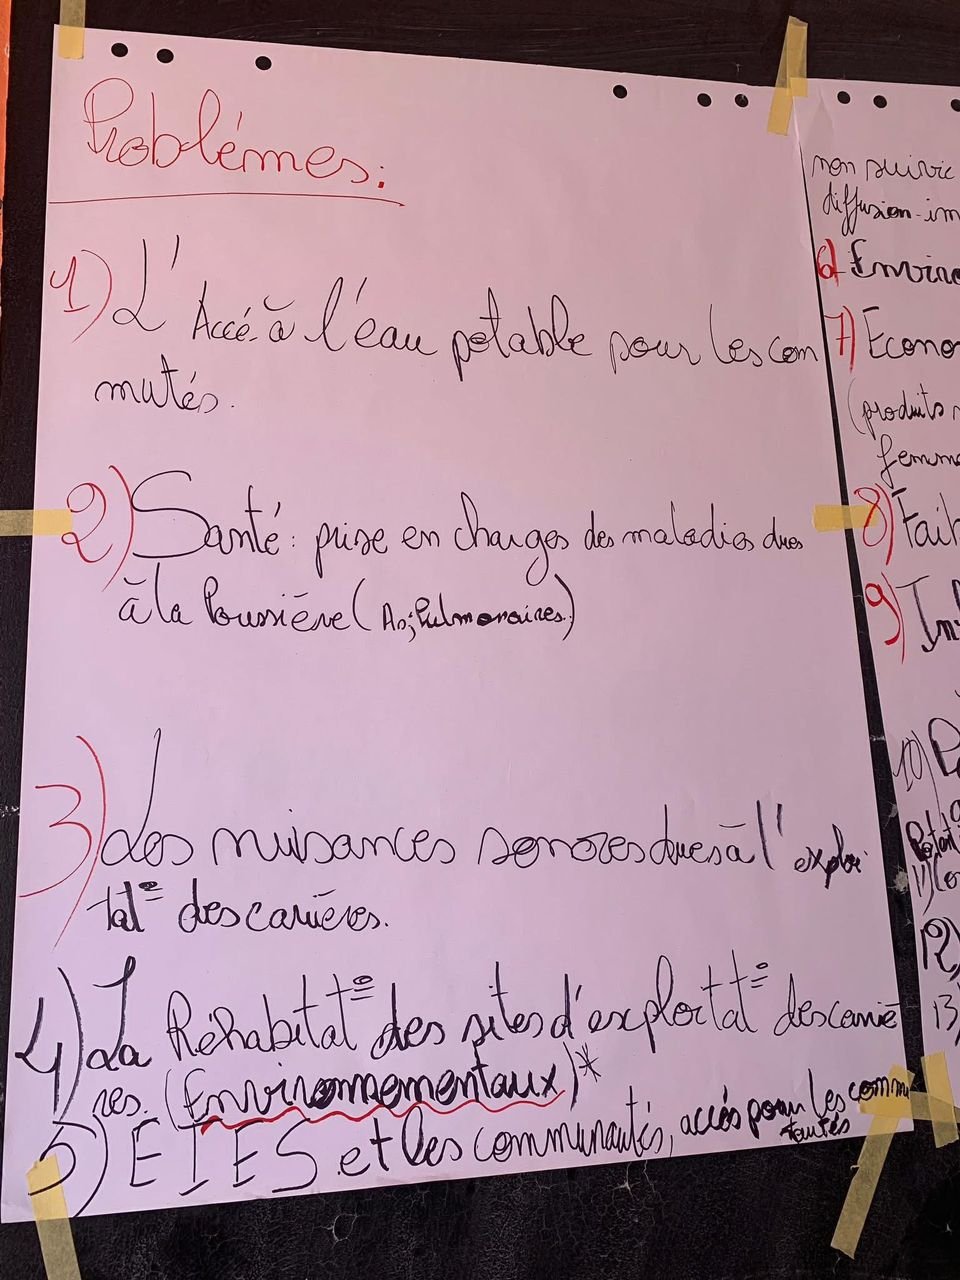 Problémes:
1) L'Accé à l'eau potable pour les com
mutés.
2) Santé: prise en charges des maladies dues
à la Poussiére (As; Pulmonaires.)
3) Les nuisances sonores dues à l' exploi
tat° des cariéres.
4) La Réhabitat° des sites d'exploitat° des carié
res. (Environnementaux)*
5) EIES et les communautés, accés pour les commu
tautés
non suivie
diffusion-im
6 Enviro
7) Econo
(produits
femme
8) Faib
9) In
10)
11) Co
12)
13)